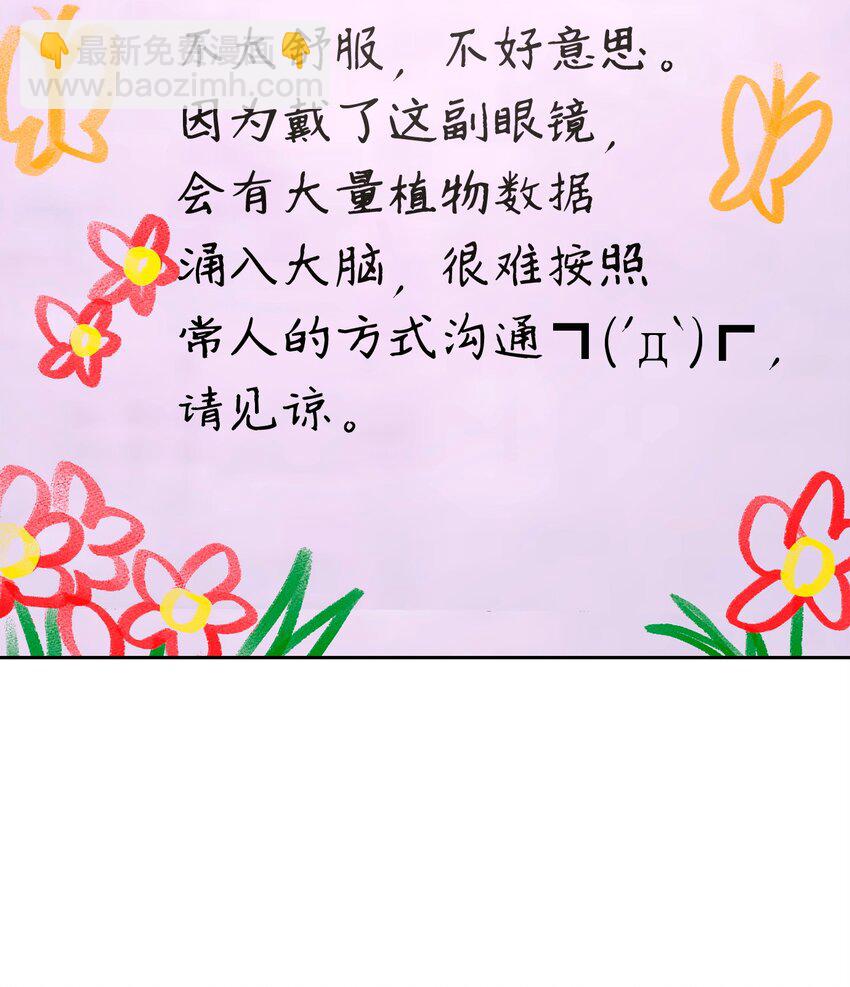 👇最新免费漫画👇
www.baozimh.com
不太舒服，不好意思。
因为戴了这副眼镜，
会有大量植物数据
涌入大脑，很难按照
常人的方式沟通┓(´Д`)┏，
请见谅。